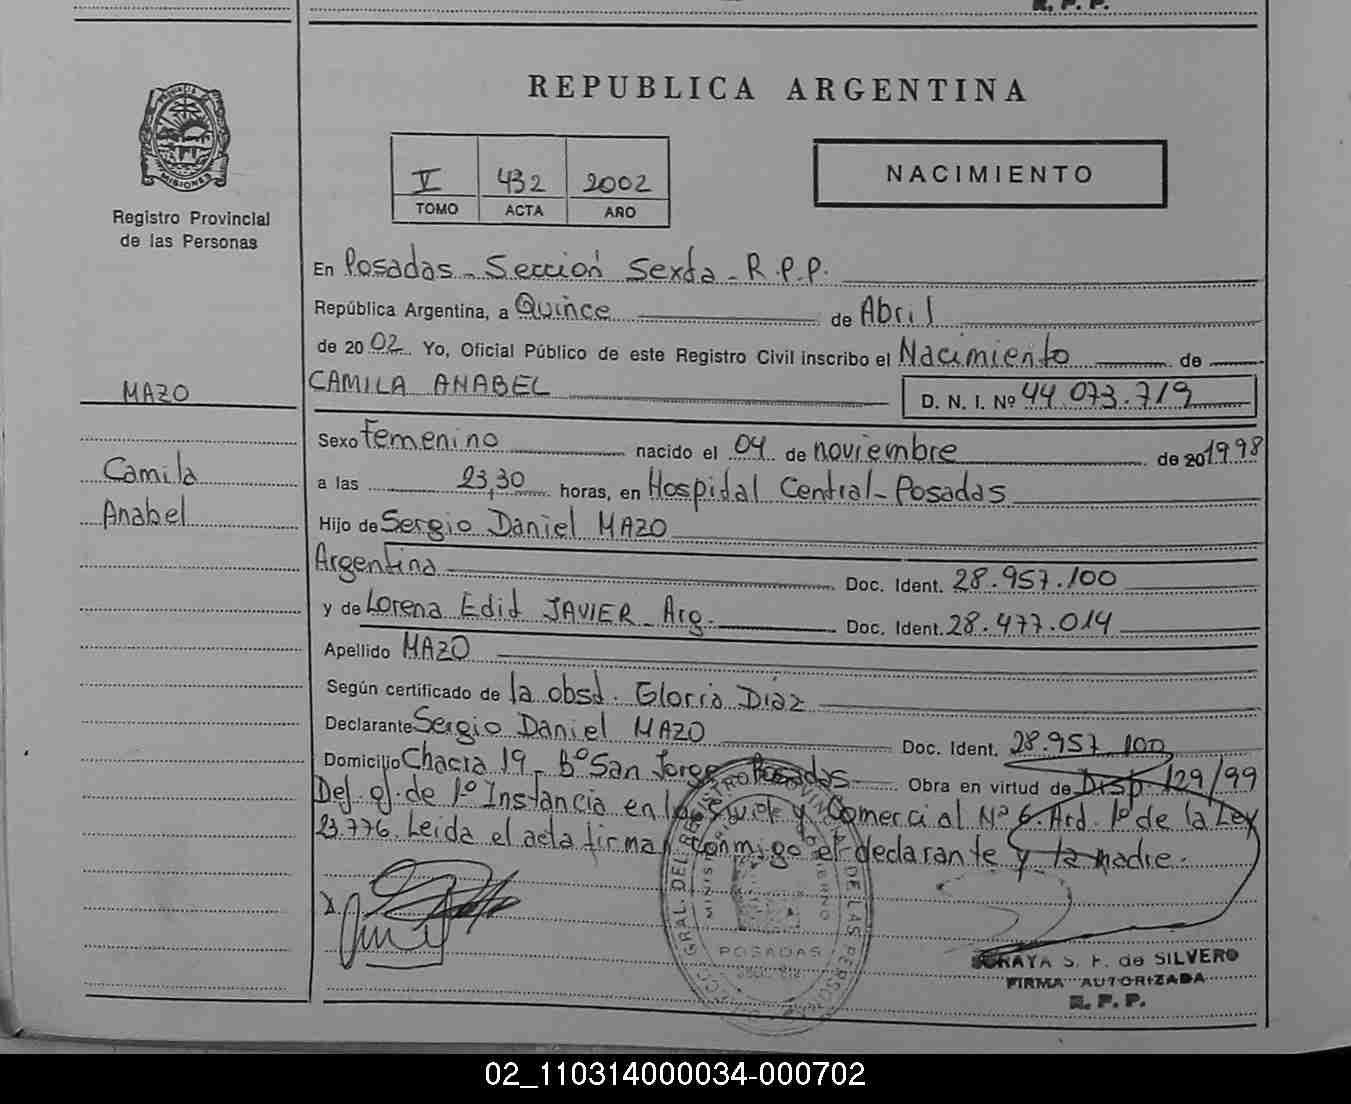 R. P. P.
PROVINCIA DE
MISIONES
Registro Provincial
de las Personas
MAZO
Camila
Anabel
REPUBLICA ARGENTINA
V 432 2002
TOMO ACTA AÑO
NACIMIENTO
En Posadas - Sección Sexta - R.P.P.
República Argentina, a Quince de Abril
de 2002 Yo, Oficial Público de este Registro Civil inscribo el Nacimiento de
CAMILA ANABEL D. N. I. Nº 44 073.719
Sexo Femenino nacido el 04 de noviembre de 20 1998
a las 23,30 horas, en Hospital Central - Posadas
Hijo de Sergio Daniel MAZO
Argentina Doc. Ident. 28.957.100
y de Lorena Edit JAVIER - Arg. Doc. Ident. 28.477.014
Apellido MAZO
Según certificado de la obst. Gloria Diaz
Declarante Sergio Daniel MAZO Doc. Ident. 28.957.100
Domicilio Chacra 19 - Bº San Jorge Posadas Obra en virtud de Disp. 129/99
Def. of. de 1º Instancia en lo y Comercial Nº 6. Art. 1º de la Ley
23.776. Leida el acta firman conmigo el declarante y la madre.
POSADAS
SORAYA S. F. de SILVERO
FIRMA AUTORIZADA
R. P. P.
02_110314000034-000702